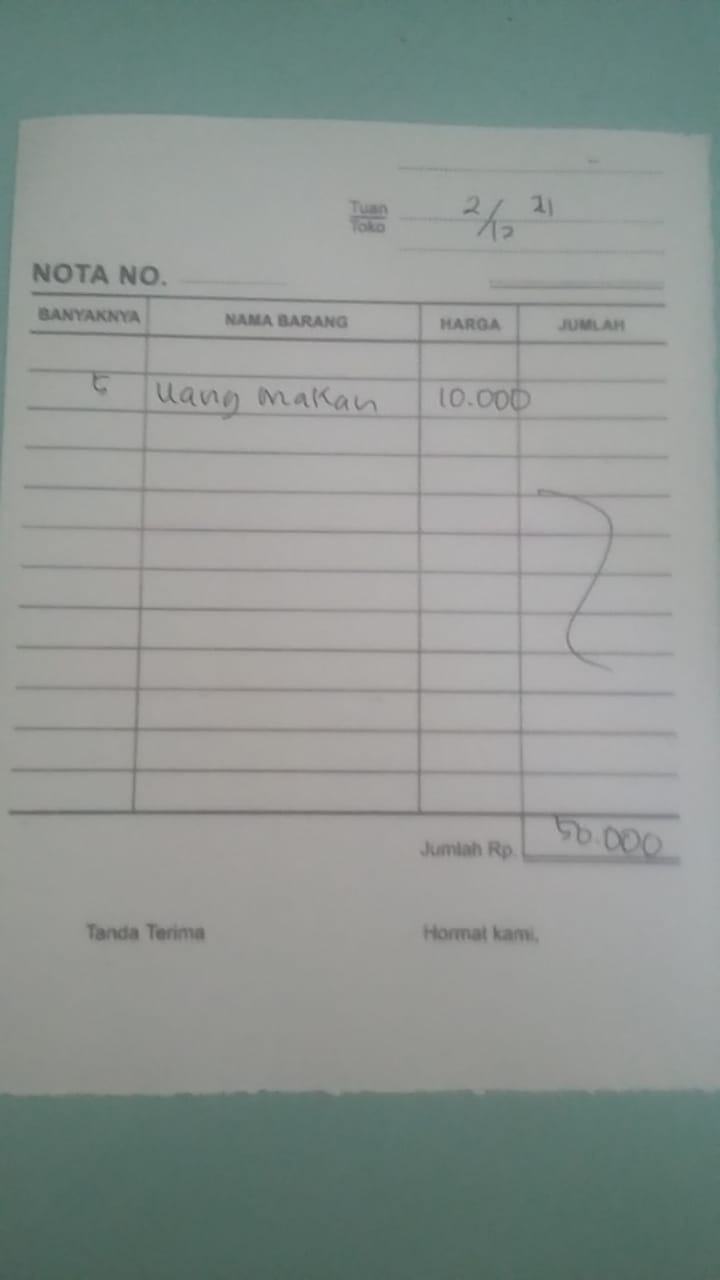 Tuan
Toko
2/12 21
NOTA NO.
BANYAKNYA NAMA BARANG HARGA JUMLAH
5 uang makan 10.000
Jumlah Rp. 50.000
Tanda Terima Hormat kami,